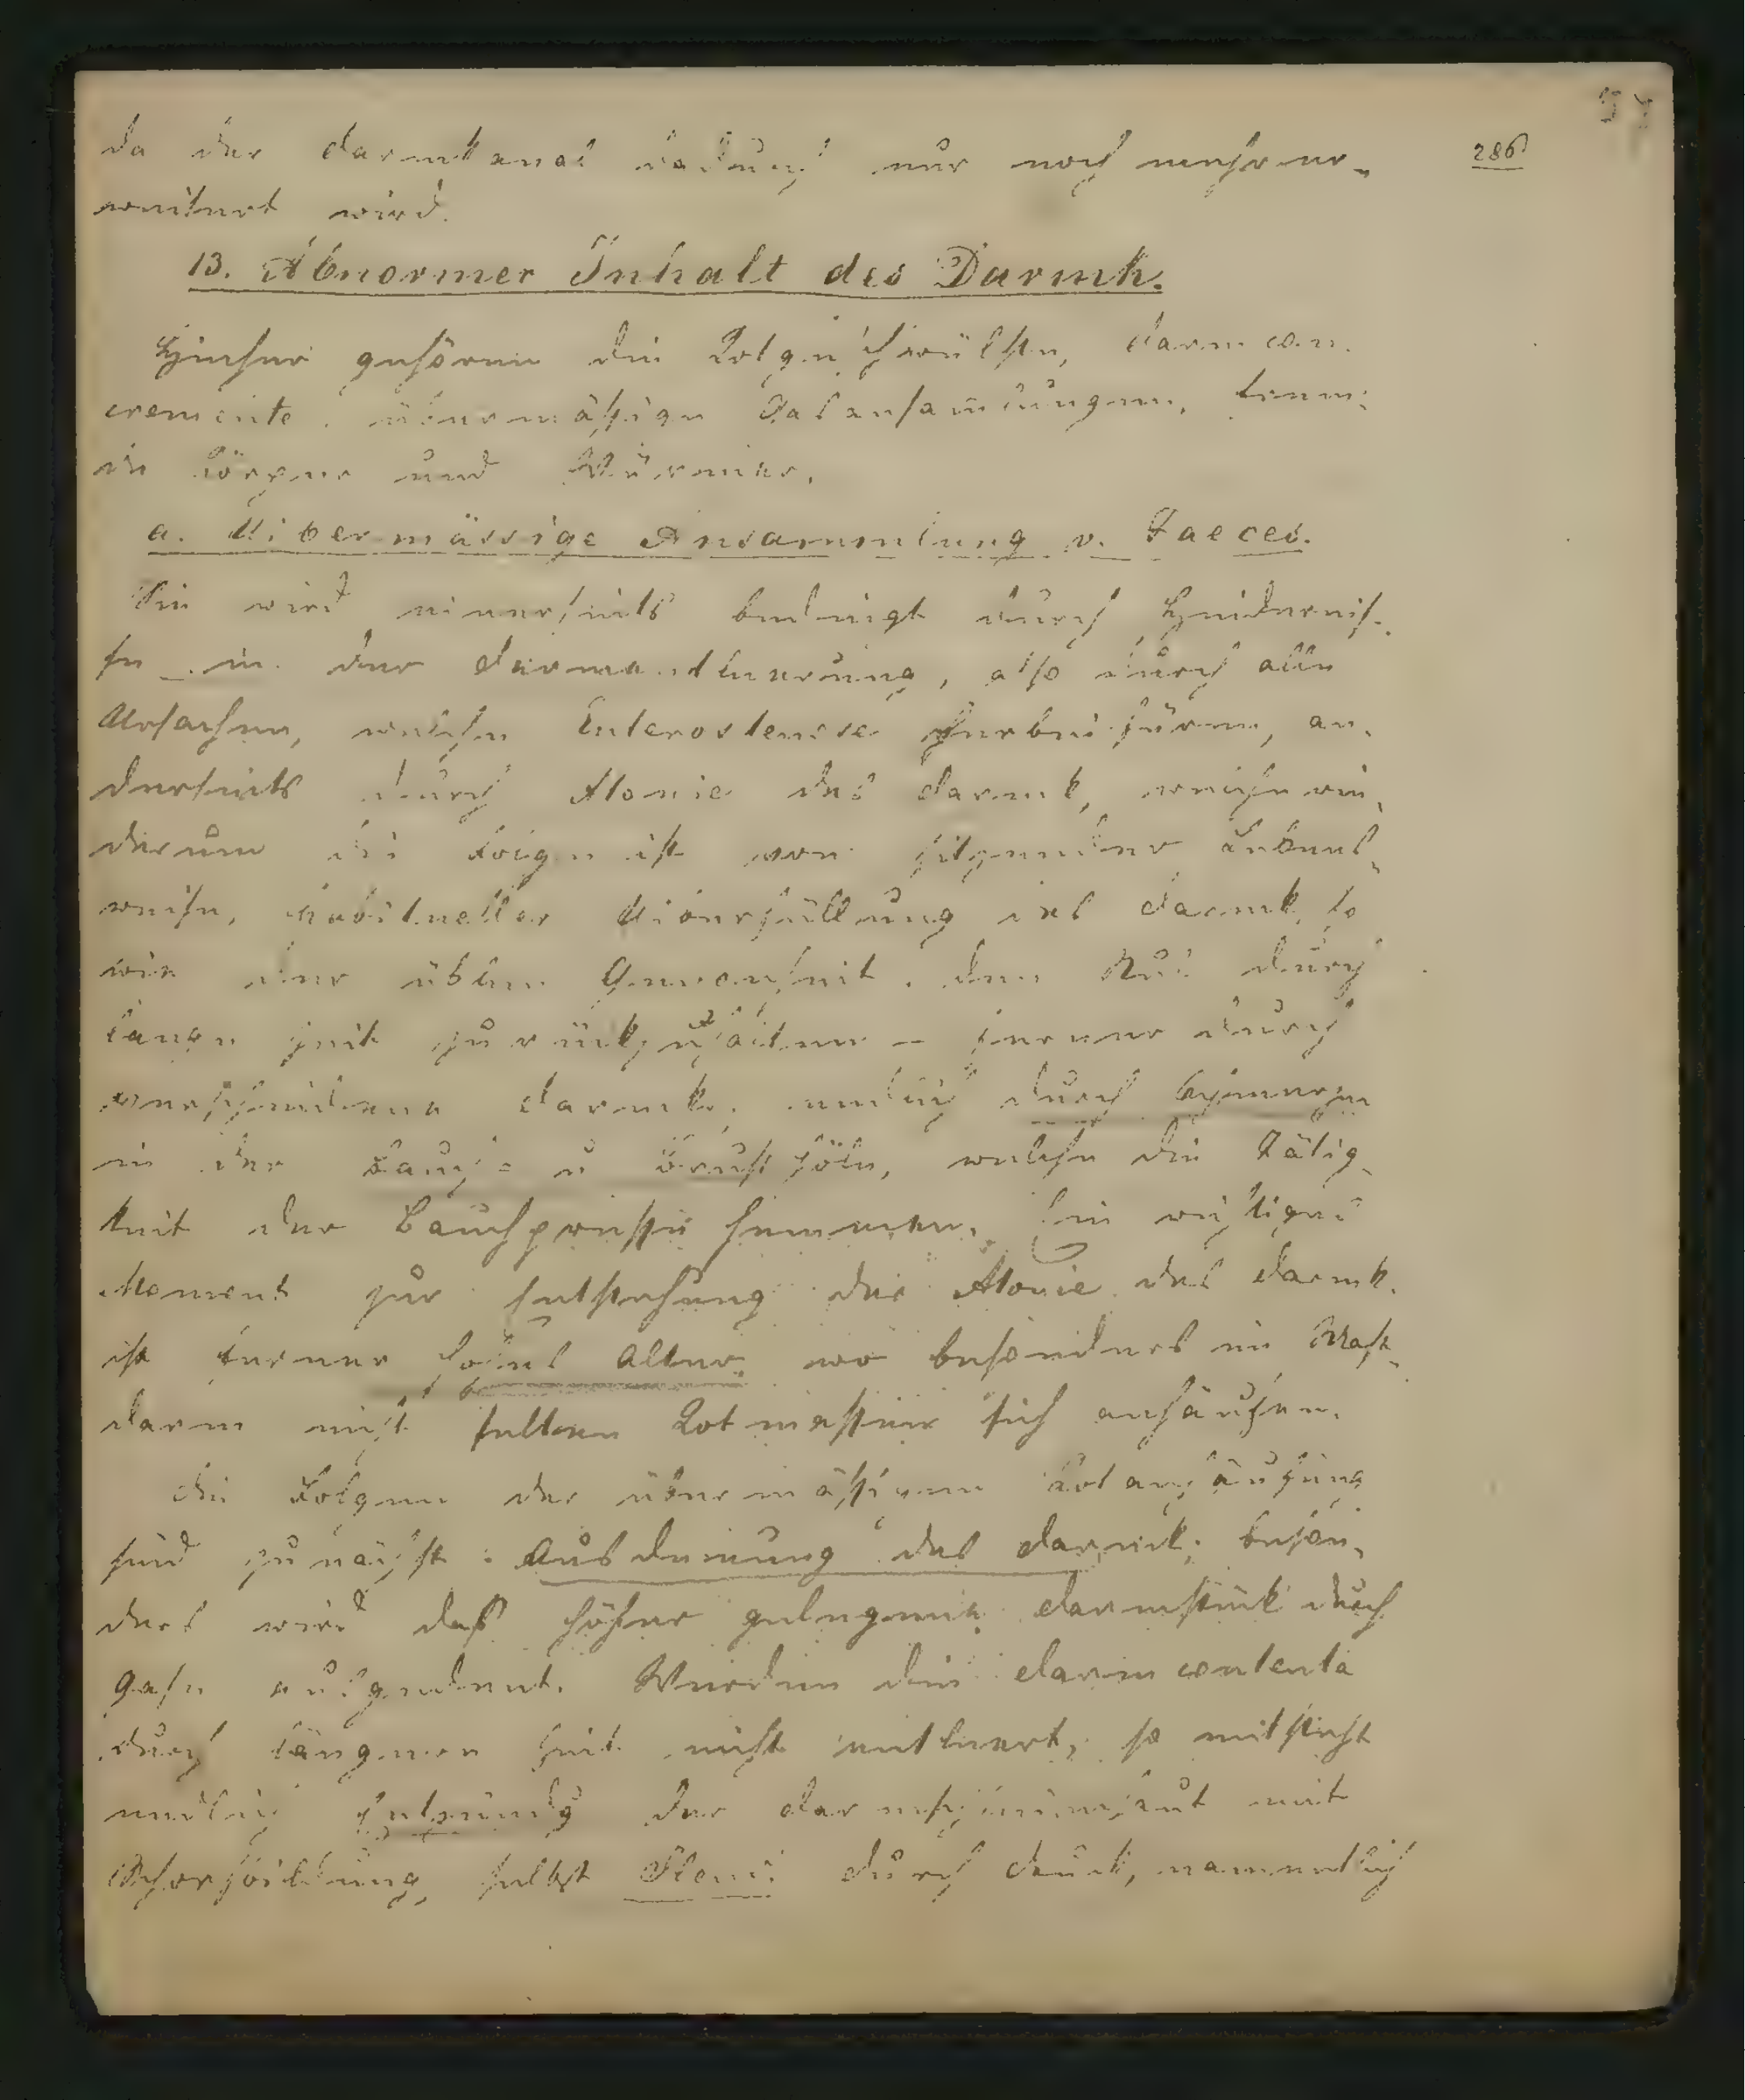 286
da der Darmkanal dadurch nur noch mehr er-
weitert wird.
13. Abnormer Inhalt des Darmk.
Hierher gehören die Kotgeschwülste, Darmcon-
cremente, übermässige Gasansammlungen, frem-
de Körper und Würmer.
a. Uibermässige Ansammlung v. Faeces.
Sie wird einerseits bedingt durch Hindernis-
se in der Darmentleerung, also durch alle
Ursachen, welche Enterostenose herbeiführen, an-
derseits durch Atonie des Darmk, welche wie-
derum die Folge ist von sitzender Lebens-
weise, habitueller Uiberfüllung des Darmk, so
wie der üblen Gewonheit, den Stul durch
lange Zeit zurückzuhalten - ferner durch
verschiedene Darmkr. endlich durch Schmerzen
in der Bauch- u Brusthöle, welche die Tätig-
keit der Bauchpresse hemmen. Ein wichtiges
Moment zur Entstehung der Atonie des Darmk.
ist ferner hohes Alter, wo besonders im Mast-
darm nicht selten Kotmassen sich anhäufen.
Die Folgen der übermässigen Kotanhäufung
sind zunächst: Ausdenung des Darmk; beson-
ders wird das höher gelegene Darmstück durch
Gase ausgedent. Werden die Darmcontenta
durch längere Zeit nicht entleert, so entsteht
endlich Entzündg der Darmschleimhaut mit
Schorfbildung, selbst durch Druck, namentlich